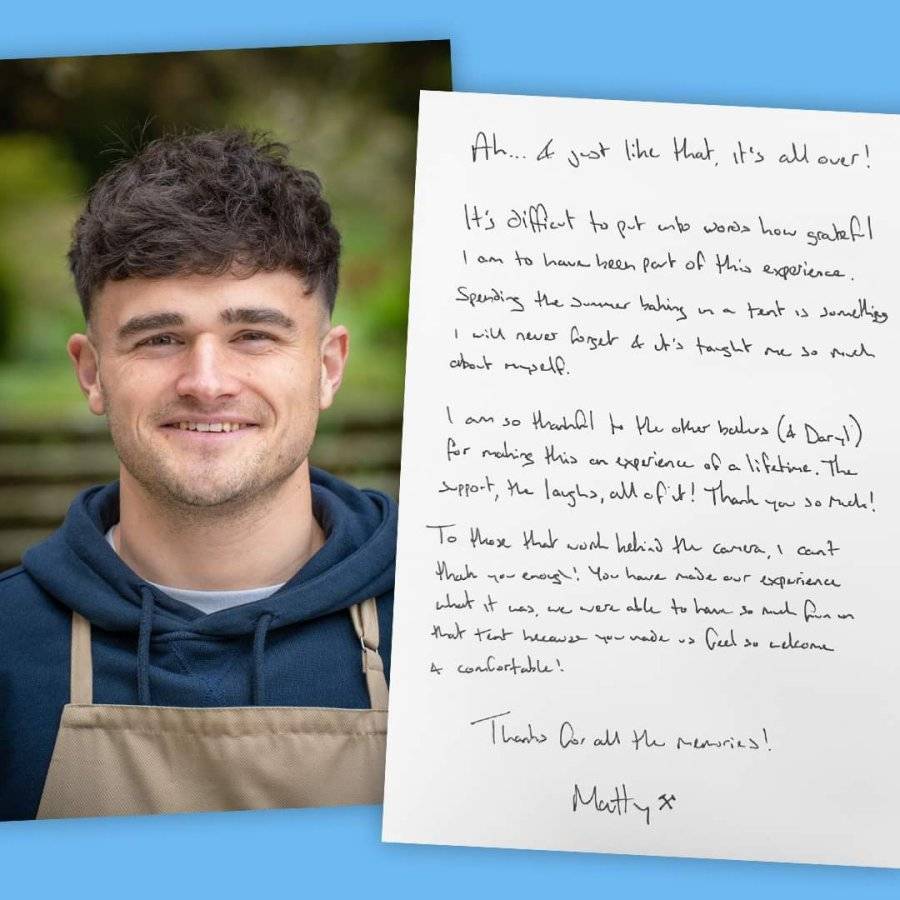 Ah... & just like that, it's all over!
It's difficult to put into words how grateful
I am to have been part of this experience.
Spending the summer baking in a tent is something
I will never forget & it's taught me so much
about myself.
I am so thankful to the other bakers (& Daryl!)
for making this an experience of a lifetime. The
support, the laughs, all of it! Thank you so much!
To those that work behind the camera, I can't
thank you enough! You have made our experience
what it was, we were able to have so much fun in
that tent because you made us feel so welcome
& comfortable!
Thanks for all the memories!
Matty